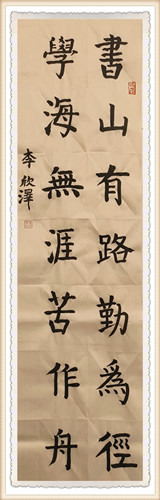 書山有路勤爲徑
學海無涯苦作舟
李欣澤